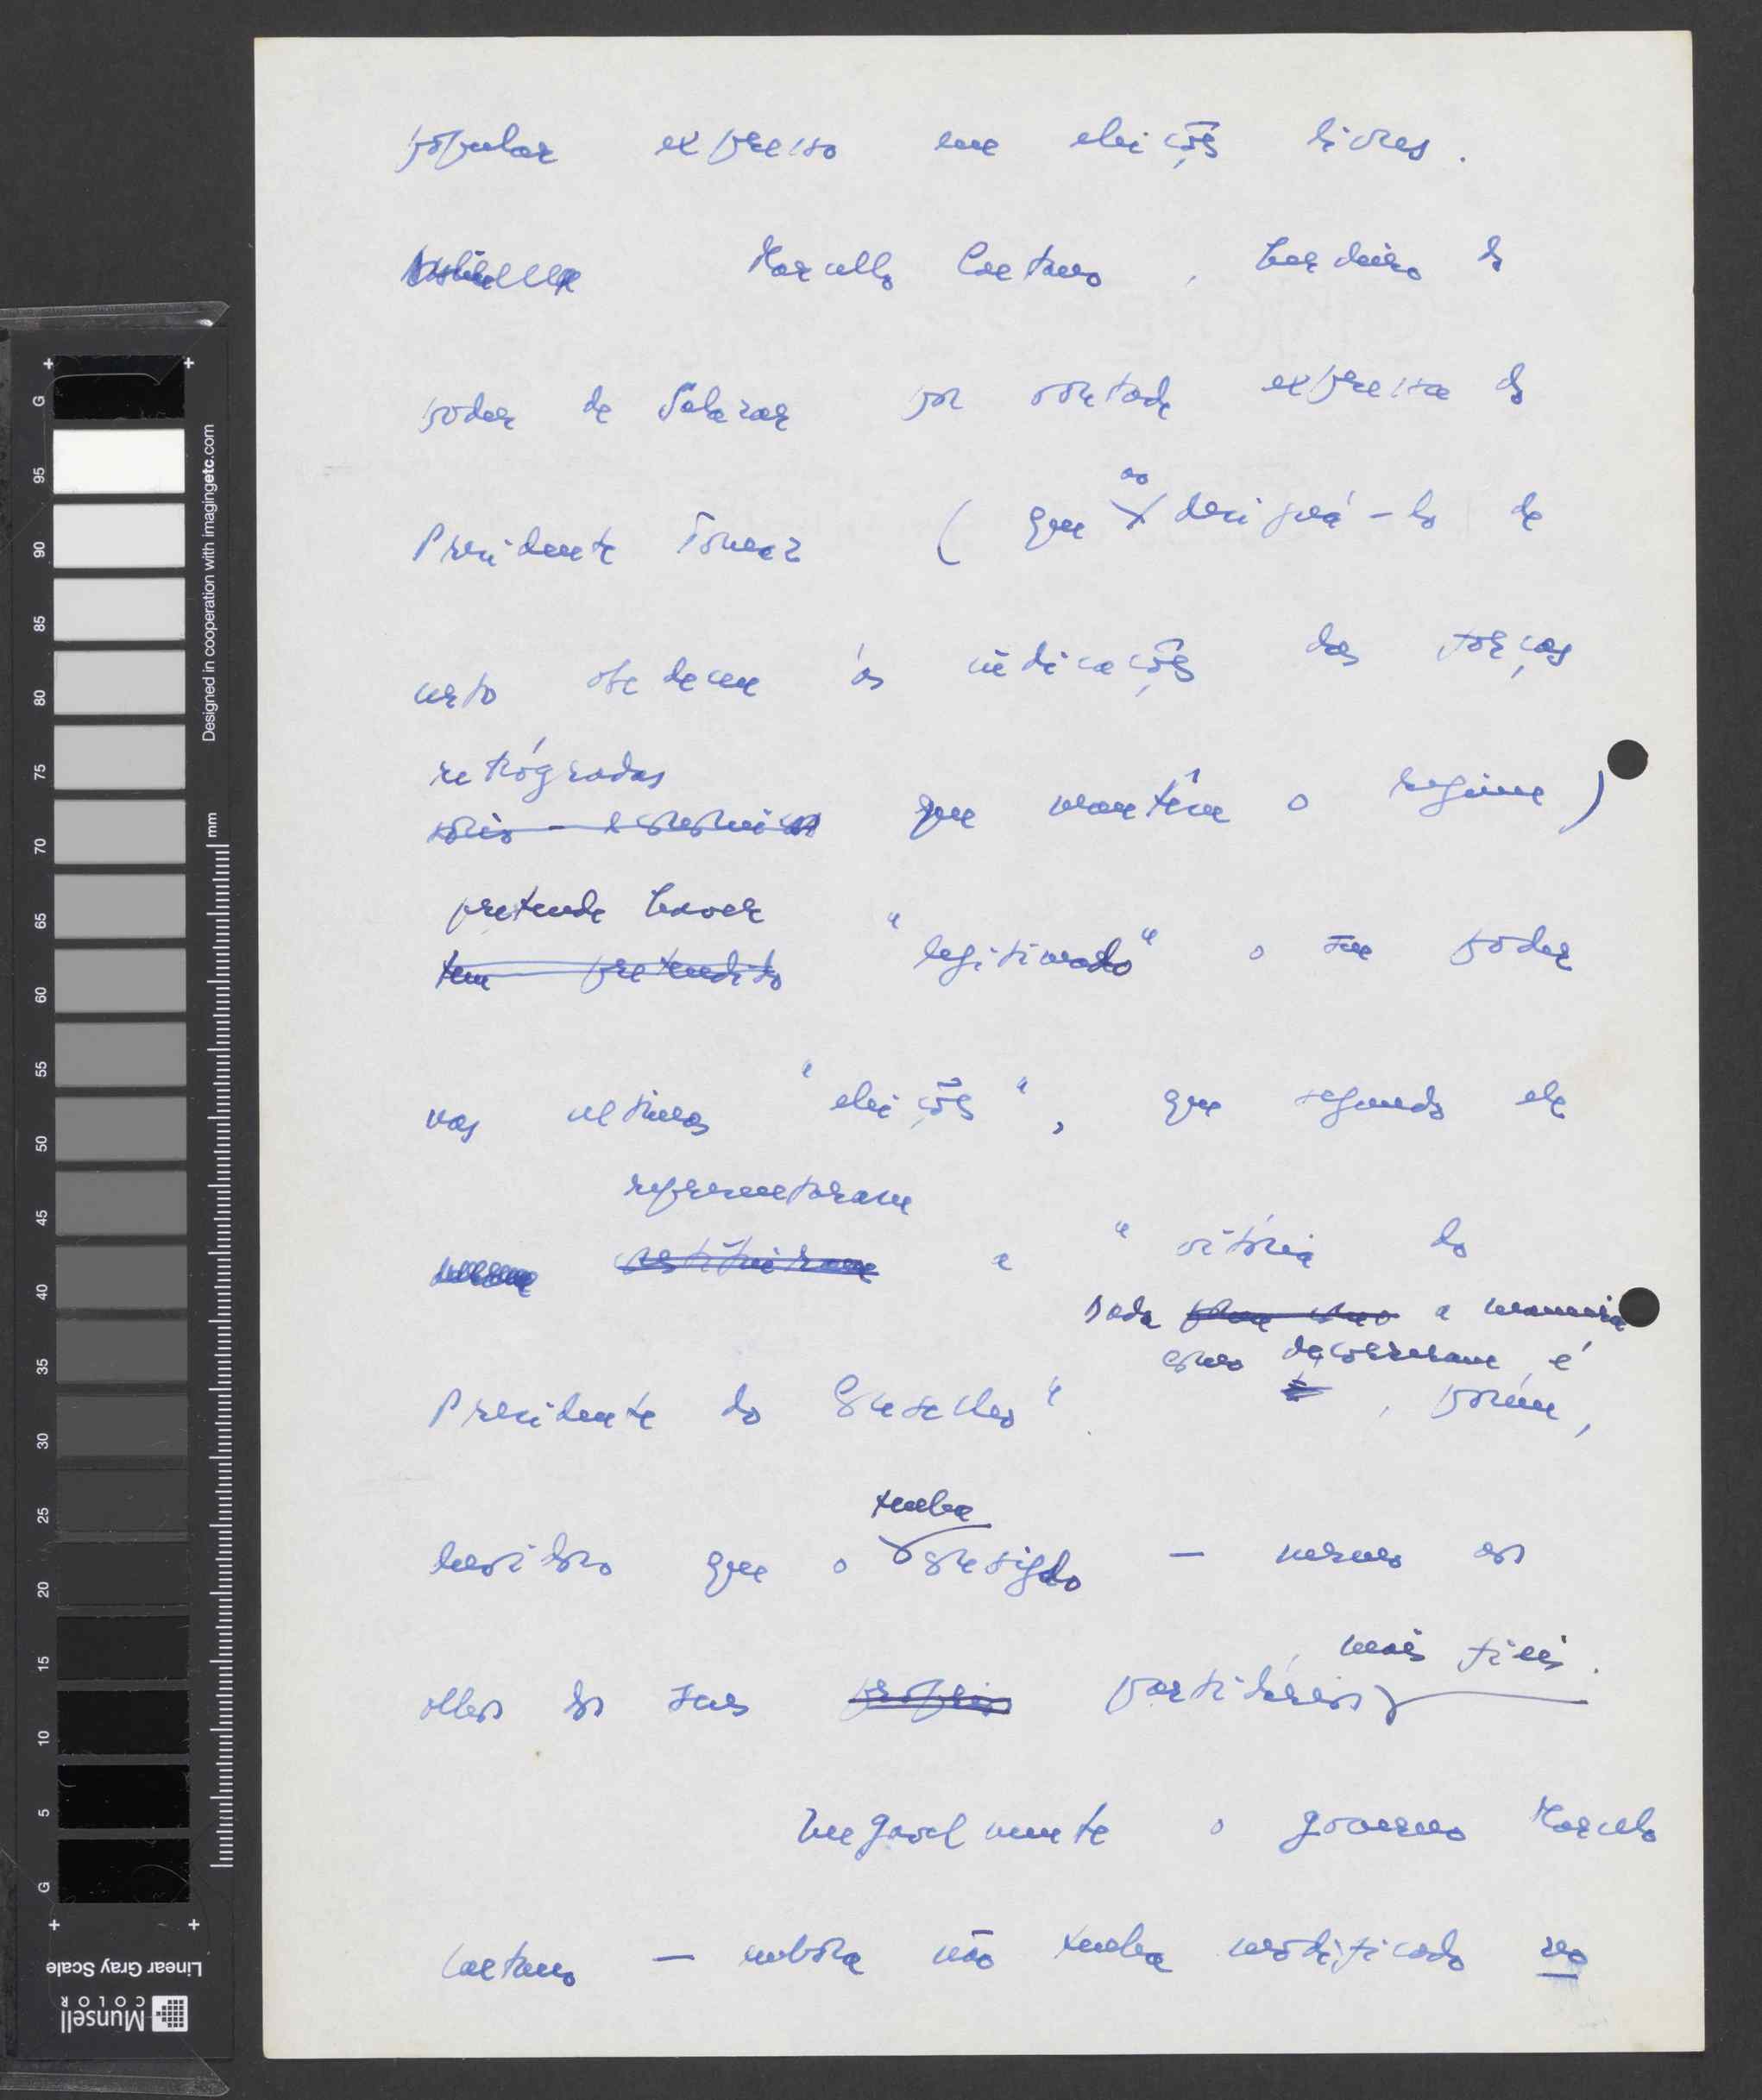 popular expresso em eleições livres.
Marcello Caetano, herdeiro do
poder de Salazar por vontade expressa do
ao
Presidente Tomaz ( que designá-lo de
certo obedeceu às indicações das forças
retrógradas
que mantêm o regime )
pretende haver
tem pretendido "legitimado" o seu poder
nas ultimas "eleições", que segundo ele
representaram
constituiram a "vitória do
Dada a maneira
como decorreram é
Presidente do Conselho". , porém,
tenha
duvidoso que o conseguido — mesmo aos
mais fieis.
olhos dos seus próprios partidários
Inegavelmente o governo Marcelo
Caetano — embora não tenha modificado no
Designed in cooperation with imagingetc.com
mm
G 95 90 85 80 75 70 65 60 55 50 45 40 35 30 25 20 15 10 5 G
Linear Gray Scale
Munsell
COLOR